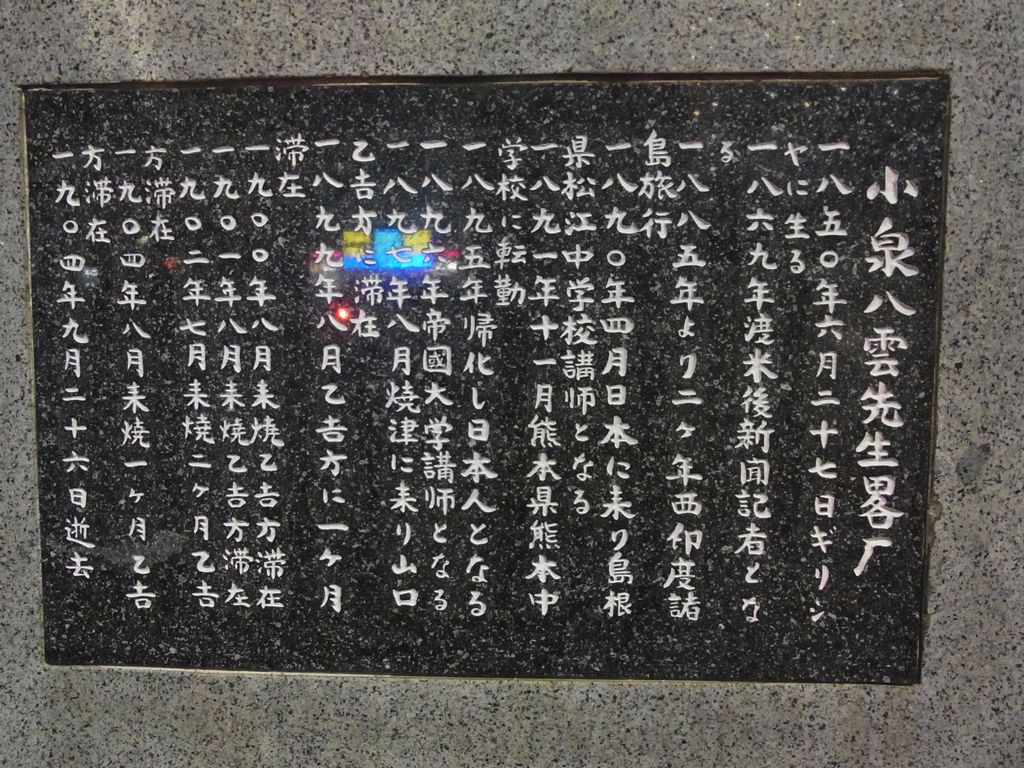 小泉八雲先生畧厂
一八五〇年六月二十七日ギリシ
ヤに生る
一八六九年渡米後新聞記者とな
る
一八八五年より二ヶ年西印度諸
島旅行
一八九〇年四月日本に来り島根
県松江中学校講師となる
一八九一年十一月熊本県熊本中
学校に転勤
一八九五年帰化し日本人となる
一八九六年帝國大学講師となる
一八九七年八月焼津に来り山口
乙吉方に滞在
一八九九年八月乙吉方に一ヶ月
滞在
一九〇〇年八月来焼乙吉方滞在
一九〇一年八月来焼乙吉方滞在
一九〇二年七月来焼二ヶ月乙吉
方滞在
一九〇四年八月来焼一ヶ月乙吉
方滞在
一九〇四年九月二十六日逝去